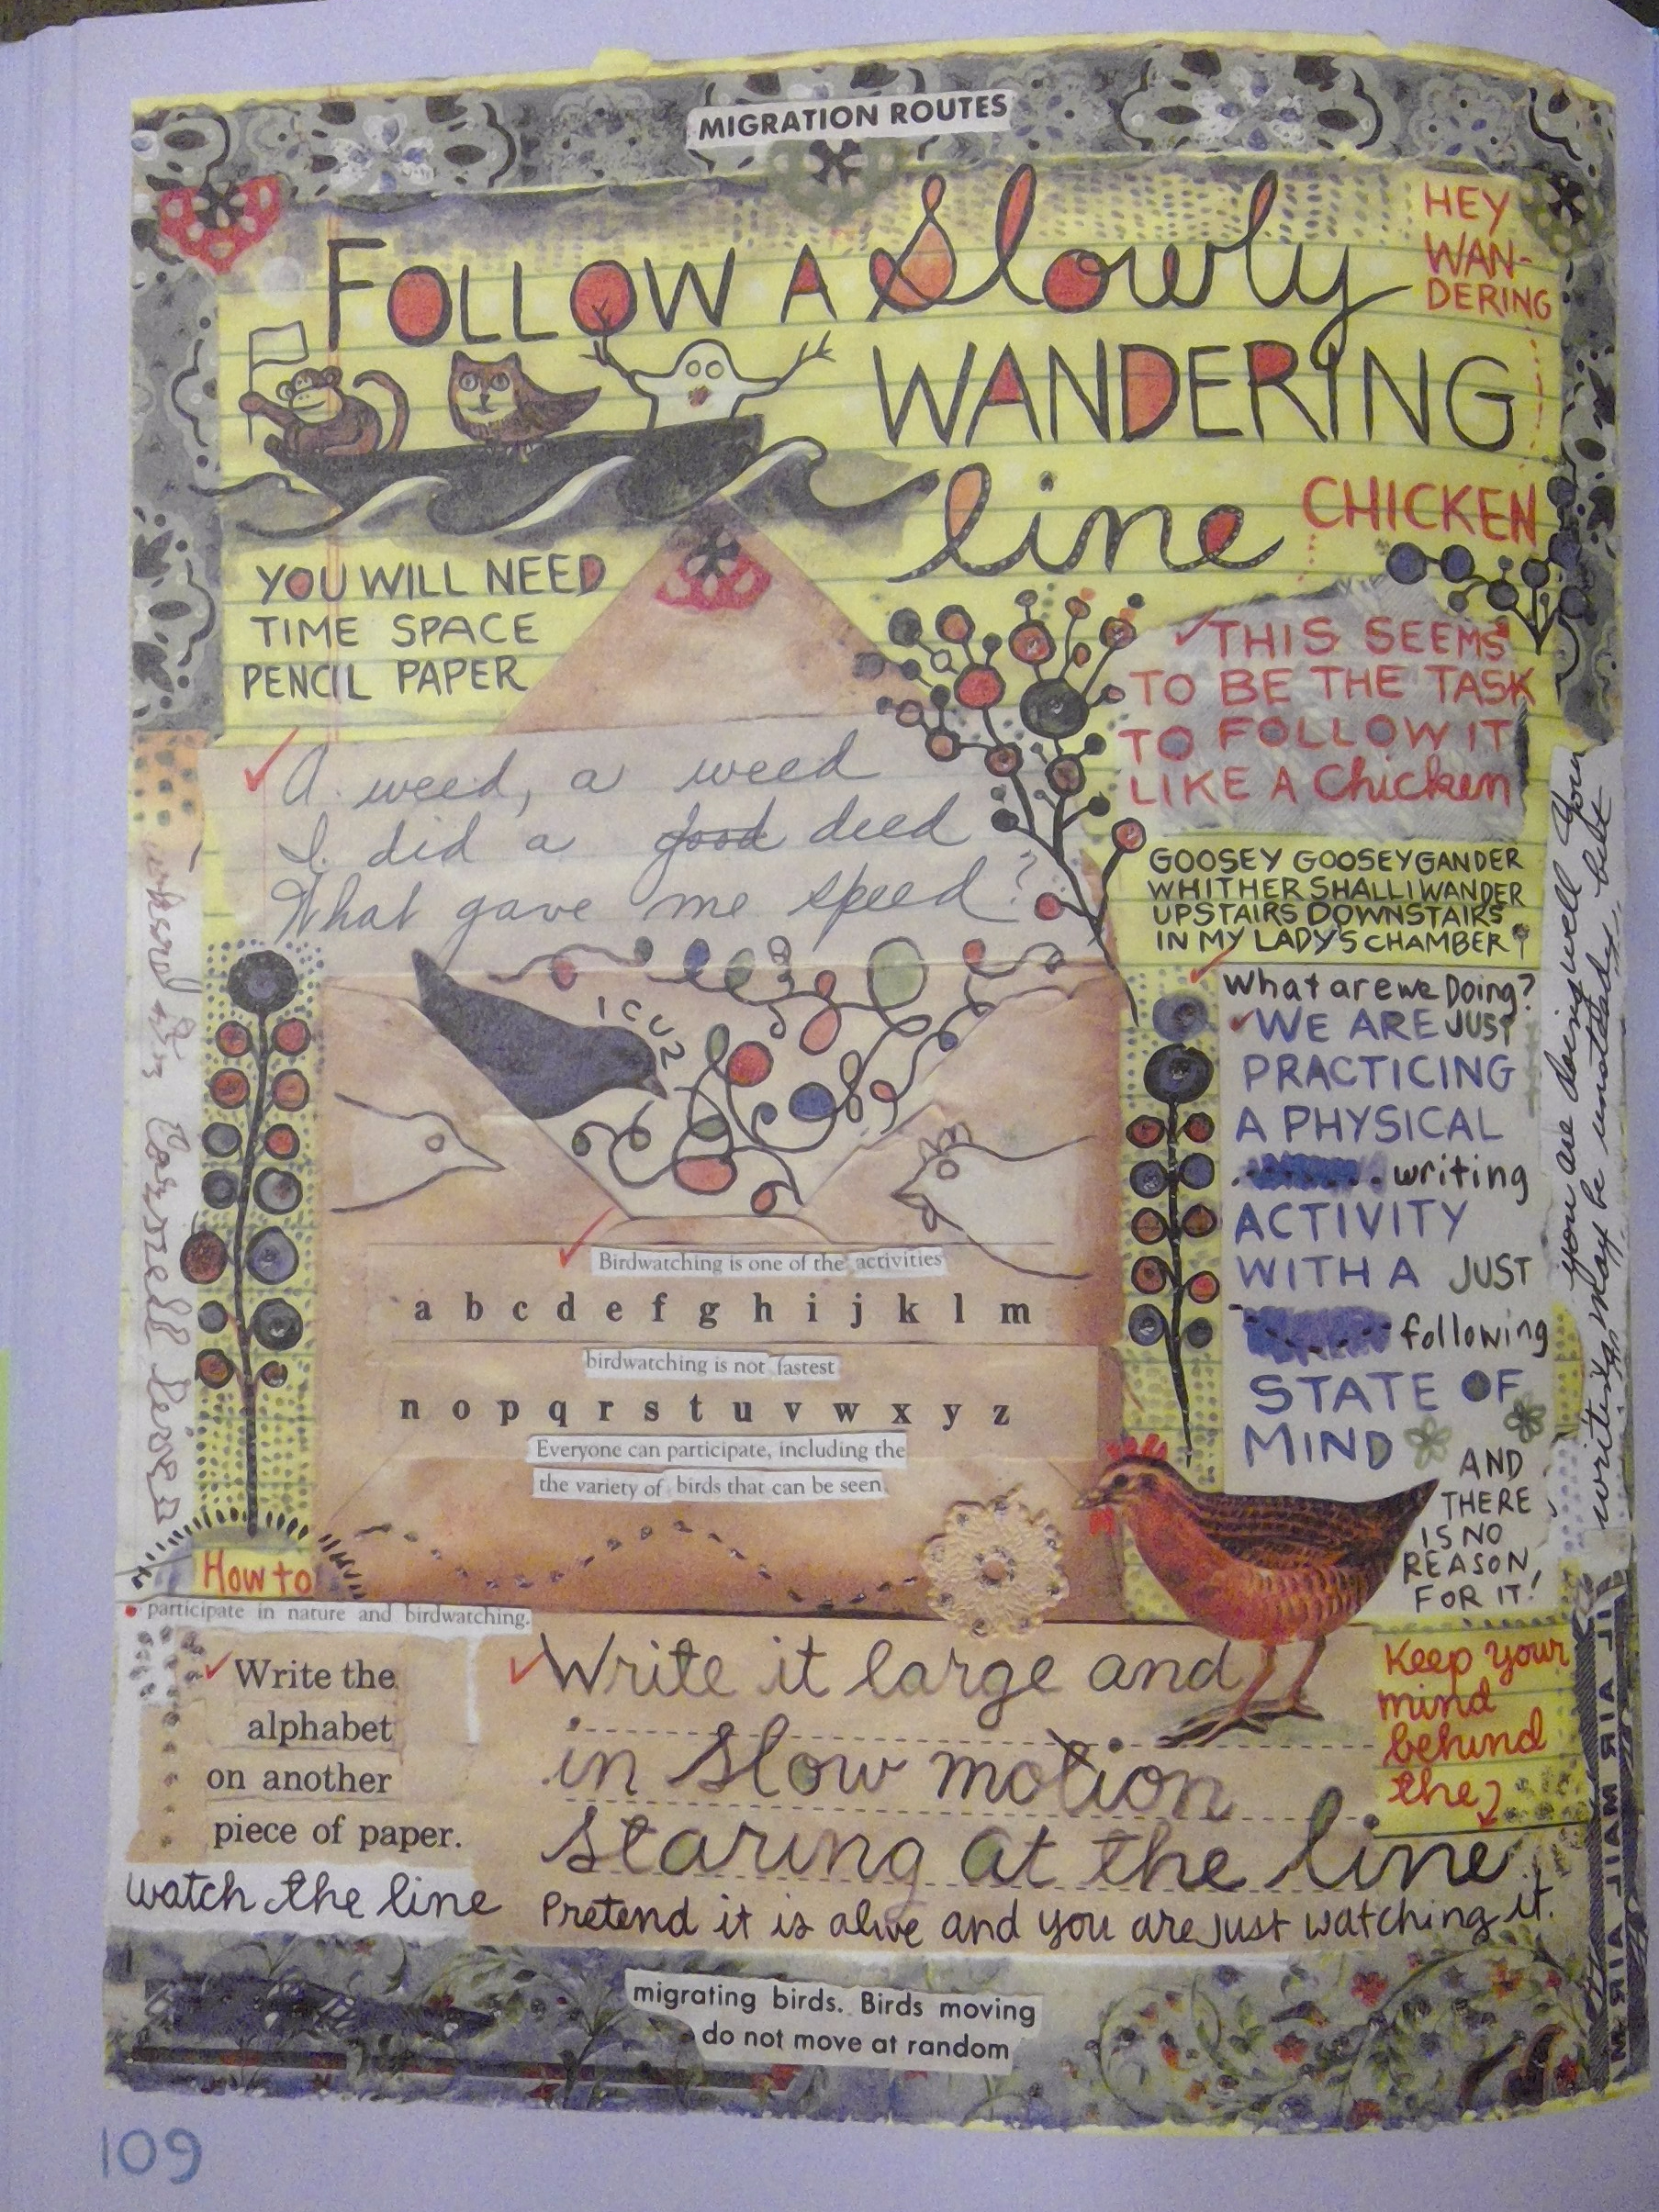 MIGRATION ROUTES
FOLLOW A Slowly
WANDERING
line
HEY
WAN-
DERING
CHICKEN
YOU WILL NEED
TIME SPACE
PENCIL PAPER
✓THIS SEEMS
TO BE THE TASK
TO FOLLOW IT
LIKE A Chicken
A weed, a weed
I did a good deed
What gave me speed?
GOOSEY GOOSEY GANDER
WHITHER SHALL I WANDER
UPSTAIRS DOWNSTAIRS
IN MY LADY'S CHAMBER
What are we Doing?
✓WE ARE JUST
PRACTICING
A PHYSICAL
writing
ACTIVITY
WITH A JUST
following
STATE OF
MIND
AND
THERE
IS NO
REASON
FOR IT!
you are doing well your
writing may be unsteady but
ICU2
Birdwatching is one of the activities
a b c d e f g h i j k l m
birdwatching is not fastest
n o p q r s t u v w x y z
Everyone can participate, including the
the variety of birds that can be seen
How to
participate in nature and birdwatching.
✓Write the
alphabet
on another
piece of paper.
watch the line
✓Write it large and
in slow motion
staring at the line
Pretend it is alive and you are just watching it.
Keep your
mind
behind
the
AIR MAIL AIR M
migrating birds. Birds moving
do not move at random
109